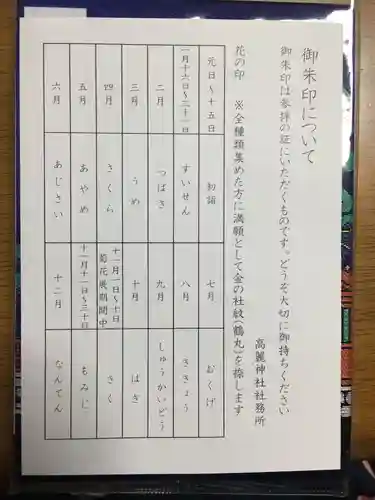 御朱印について
御朱印は参拝の証にいただくものです。どうぞ大切に御持ちください
高麗神社社務所
花の印　※全種類集めた方に満願として金の社紋(鶴丸)を捺します
元日～十五日　初詣　七月　むくげ
一月十六日～三十一日　すいせん　八月　ききょう
二月　つばき　九月　しゅうかいどう
三月　うめ　十月　はぎ
四月　さくら　十一月一日～十日　菊花展期間中　きく
五月　あやめ　十一月十一日～三十日　もみじ
六月　あじさい　十二月　なんてん